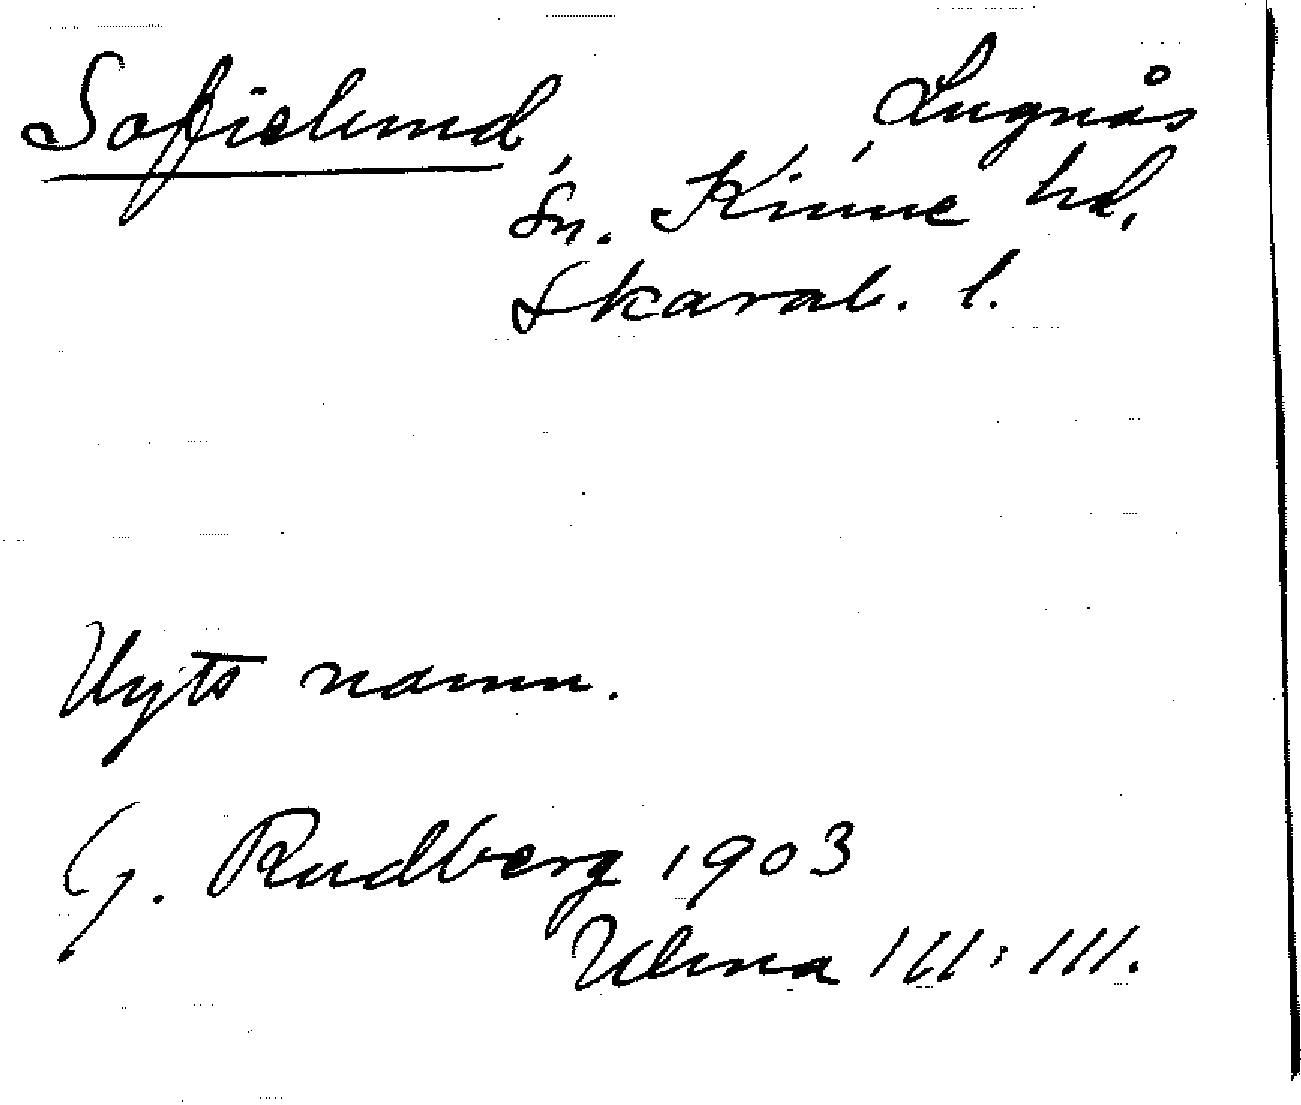 Sofielund, Lugnås
sn. Kinne hd,
Skarab. l.
namn.
G. Rudberg 1903
Ulma 111:111.